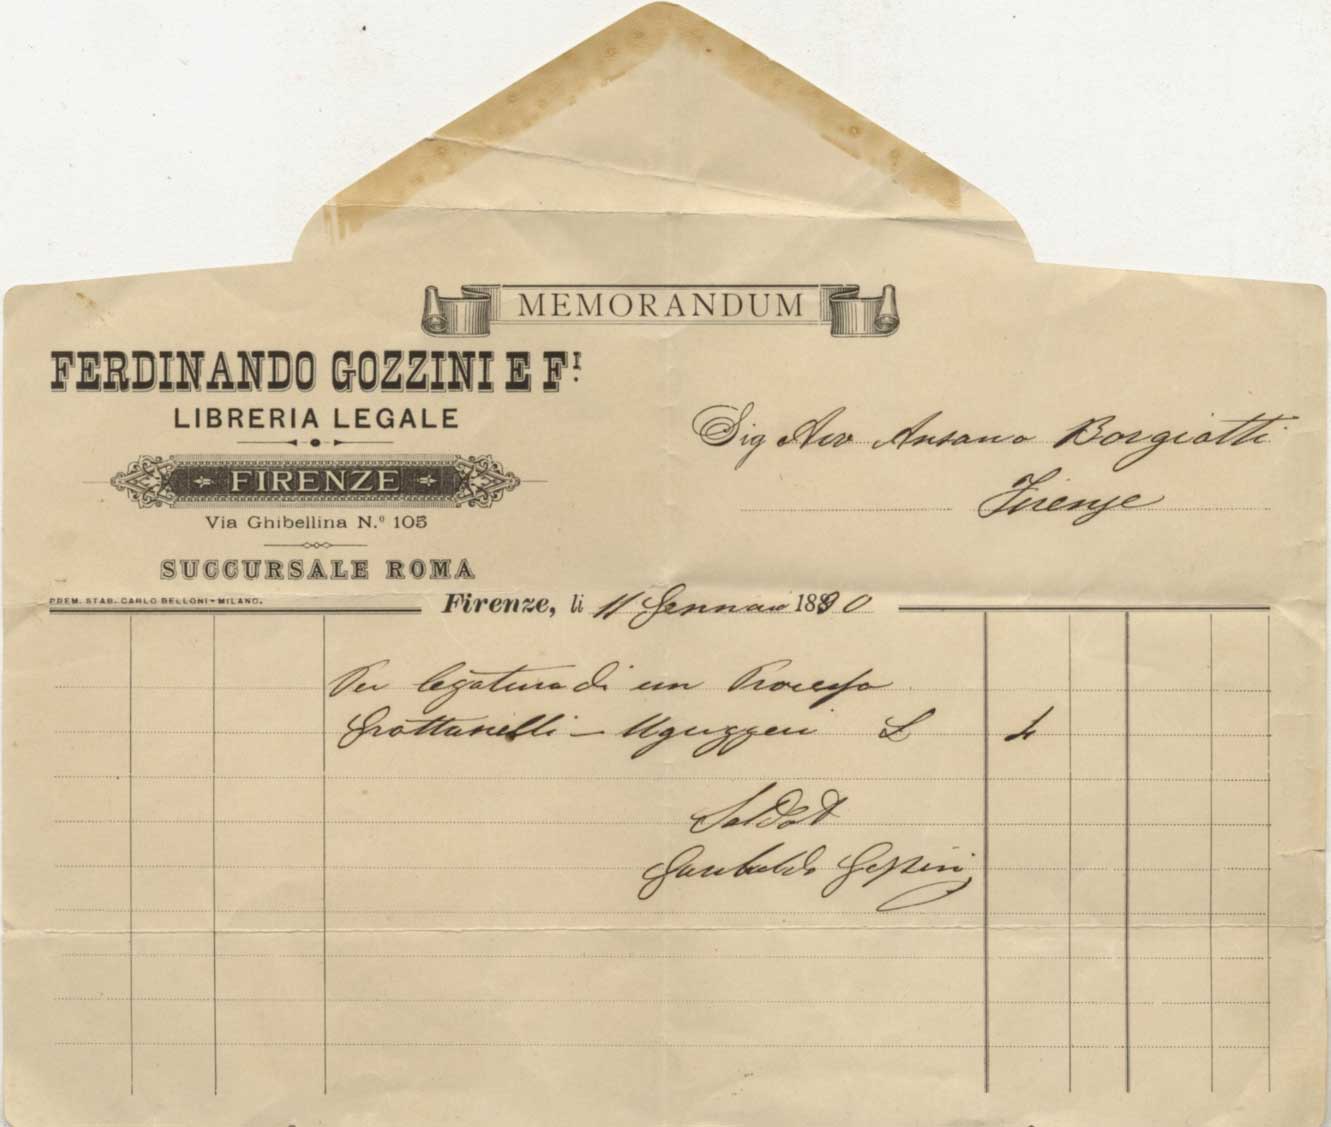 MEMORANDUM
FERDINANDO GOZZINI E F.I
LIBRERIA LEGALE
FIRENZE
Via Ghibellina N.º 105
SUCCURSALE ROMA
PREM. STAB. CARLO BELLONI - MILANO.
Sig Avv Ansano Borgiotti
Firenze
Firenze, li 11 Gennaio 1890
Per legatura di un Processo
Grottanelli - Uguggeri L 4
Saldato
Garibaldo